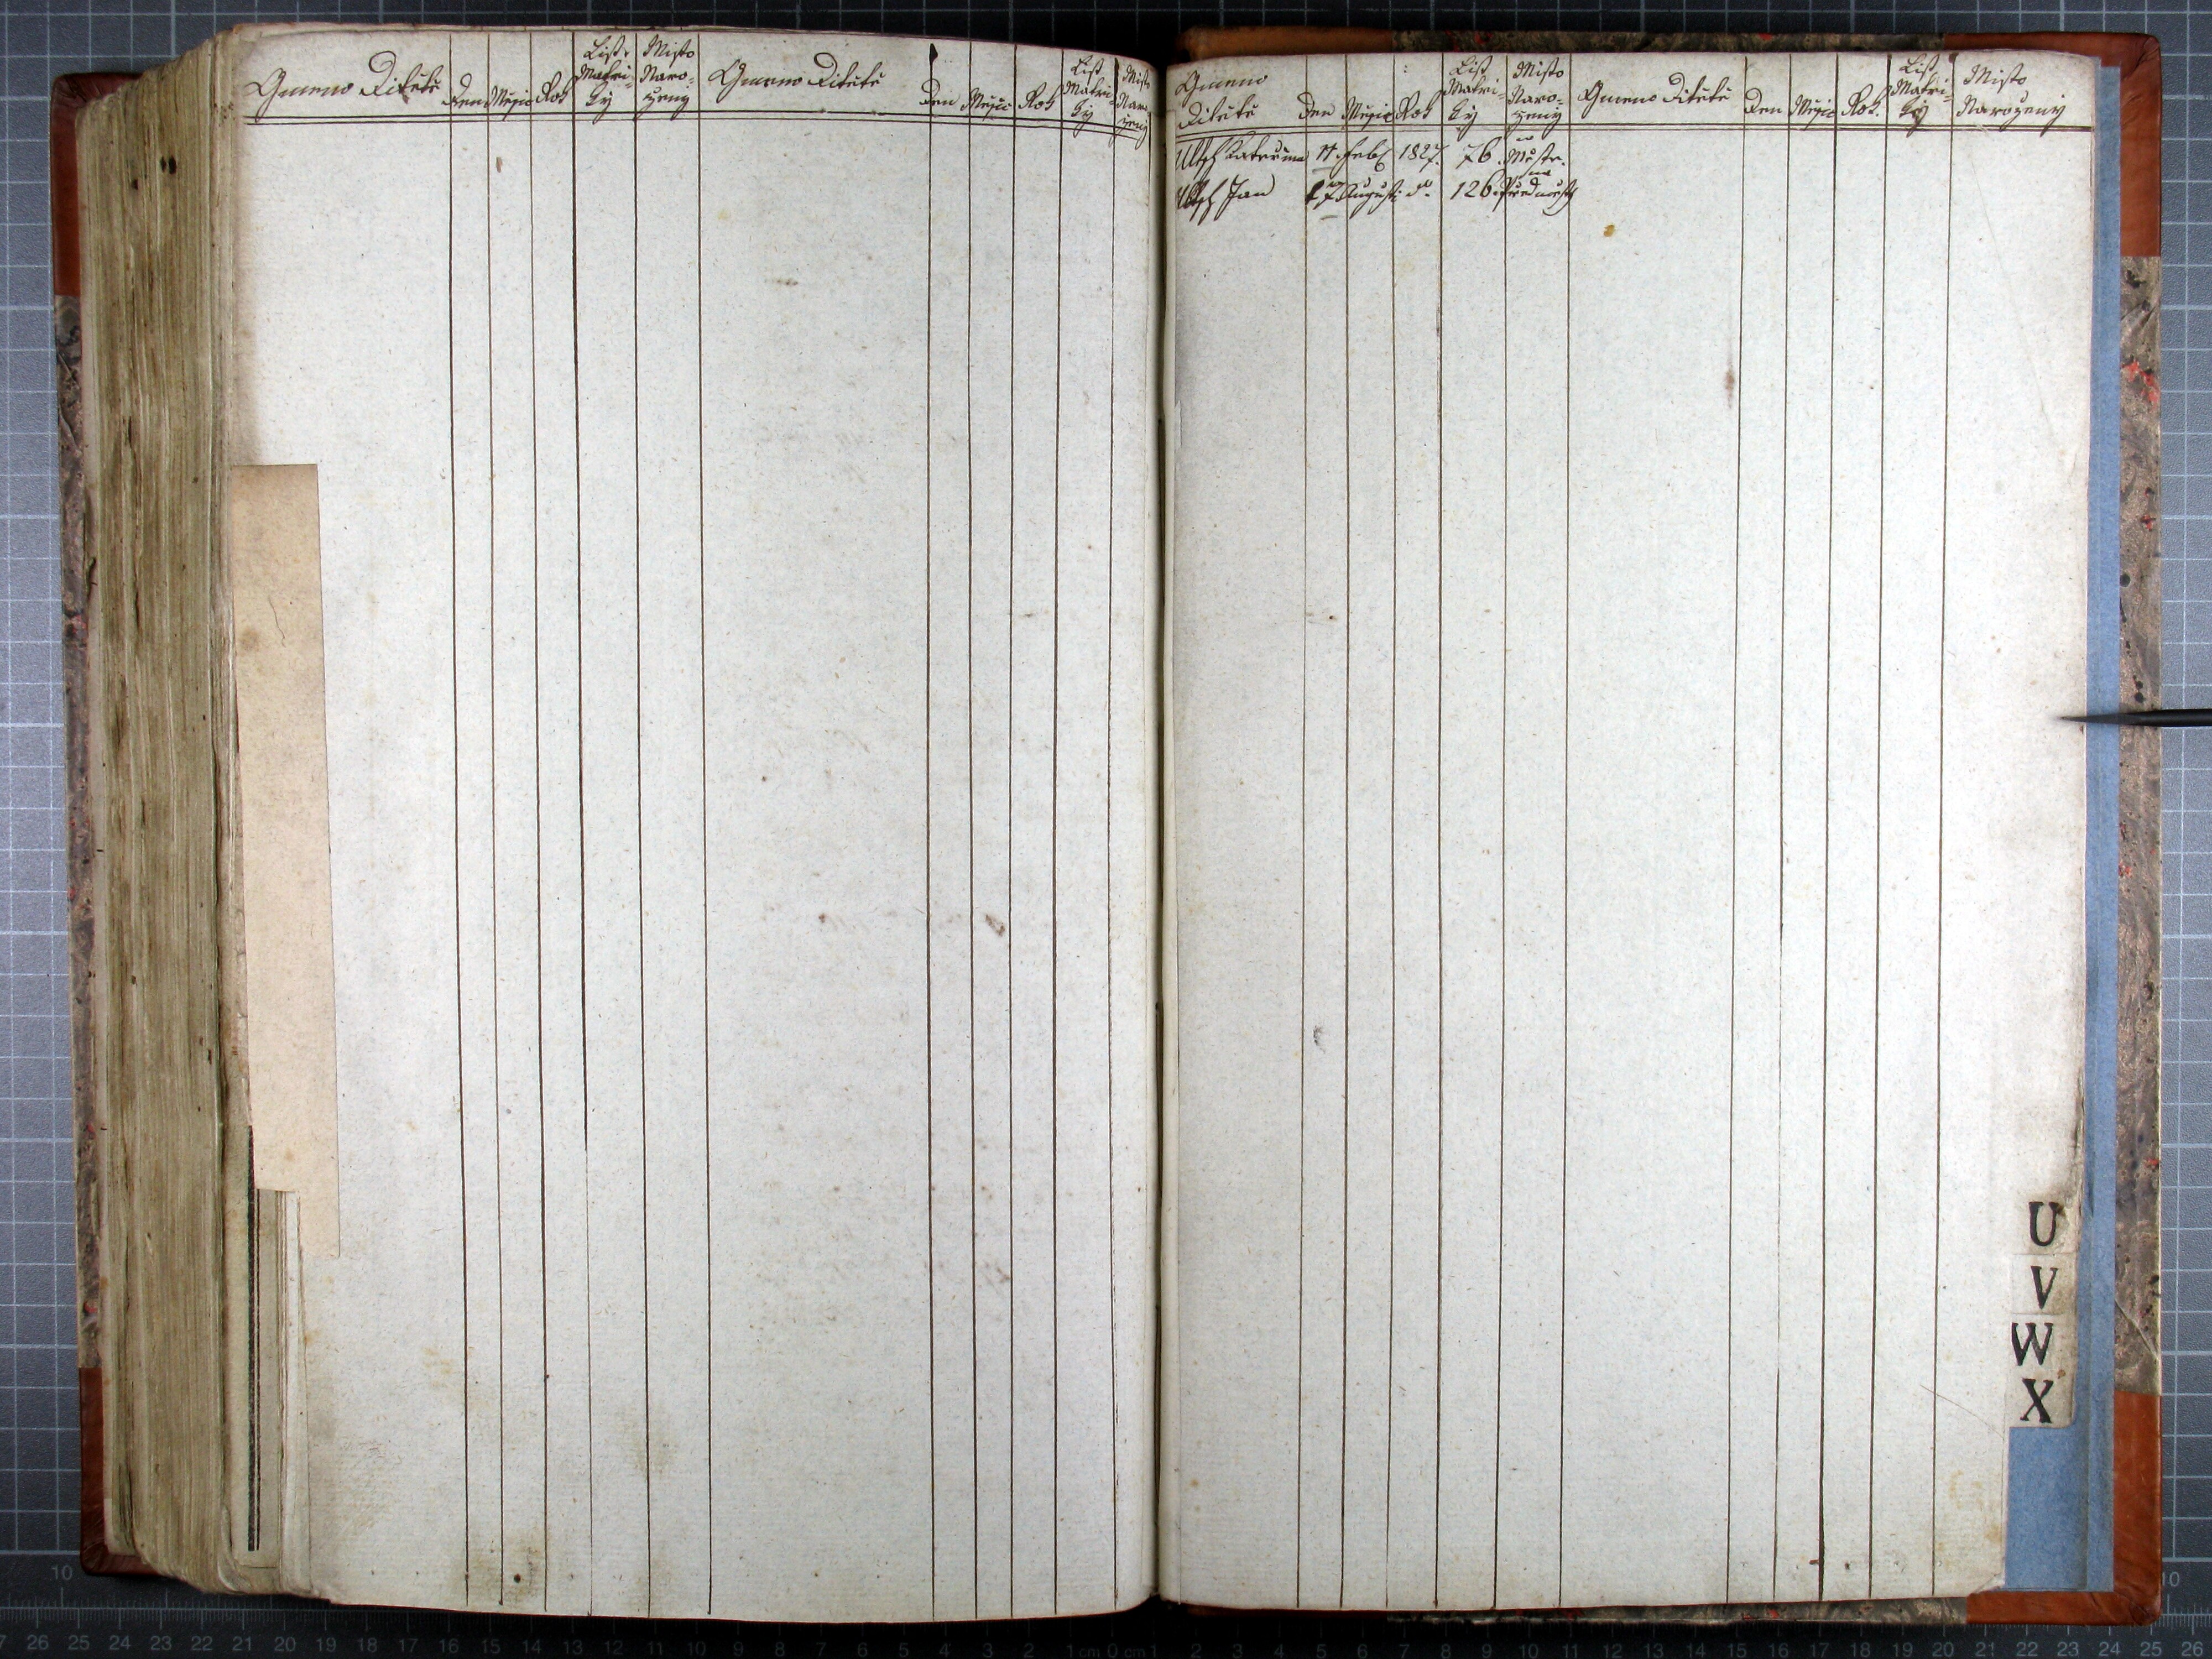 Gmeno Ditěte Den Měsic Rok List Matri- ky Misto Naro- zeny Gmeno Ditěte Den Měsic Rok List Matri- ky Misto Naro- zeny
Gmeno Ditěte Den Měsic Rok List Matri- ky Misto Naro- zeny Gmeno Ditěte Den Měsic Rok. List Matri- ky Misto Narozeny
Kateřina 11. Feb 1827. 76. w Městě.
Jan 17 August: dº. 126. na Předměstj
U
V
W
X
10
27 26 25 24 23 22 21 20 19 18 17 16 15 14 13 12 11 10 9 8 7 6 5 4 3 2 1 cm 0 cm 1 2 3 4 5 6 7 8 9 10 11 12 13 14 15 16 17 18 19 20 21 22 23 24 25 26
10